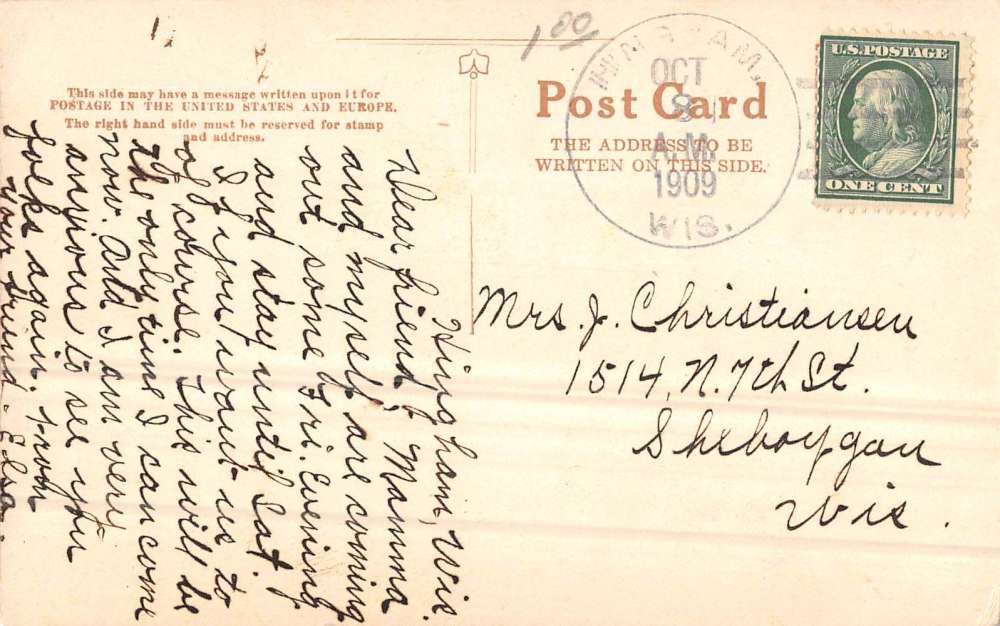 This side may have a message written upon it for
POSTAGE IN THE UNITED STATES AND EUROPE.
The right hand side must be reserved for stamp
and address.
Hingham, Wis.
Dear friend, Mamma
and myself are coming
out some Fri. Evening
and stay until Sat.
If you want us to
of course. This will be
the only time I can come
now. And I am very
anxious to see you
folks again. From
your friend. Elsa.
1.00
Post Card
THE ADDRESS TO BE
WRITTEN ON THIS SIDE.
HINGHAM.
OCT
8
A.M.
1909
WIS.
U.S. POSTAGE
ONE CENT
Mrs. J. Christiansen
1514, N. 7th St.
Sheboygan
Wis.